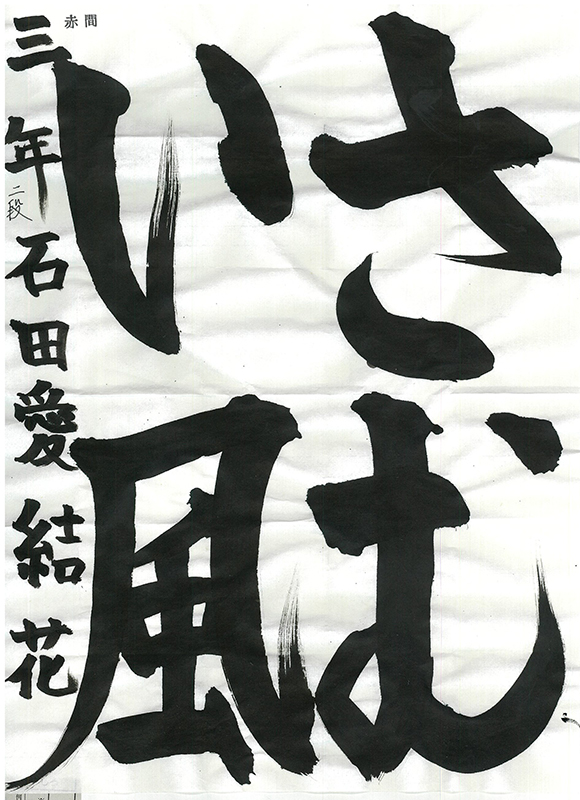 さむ
い風
三年二段石田愛結花
赤間